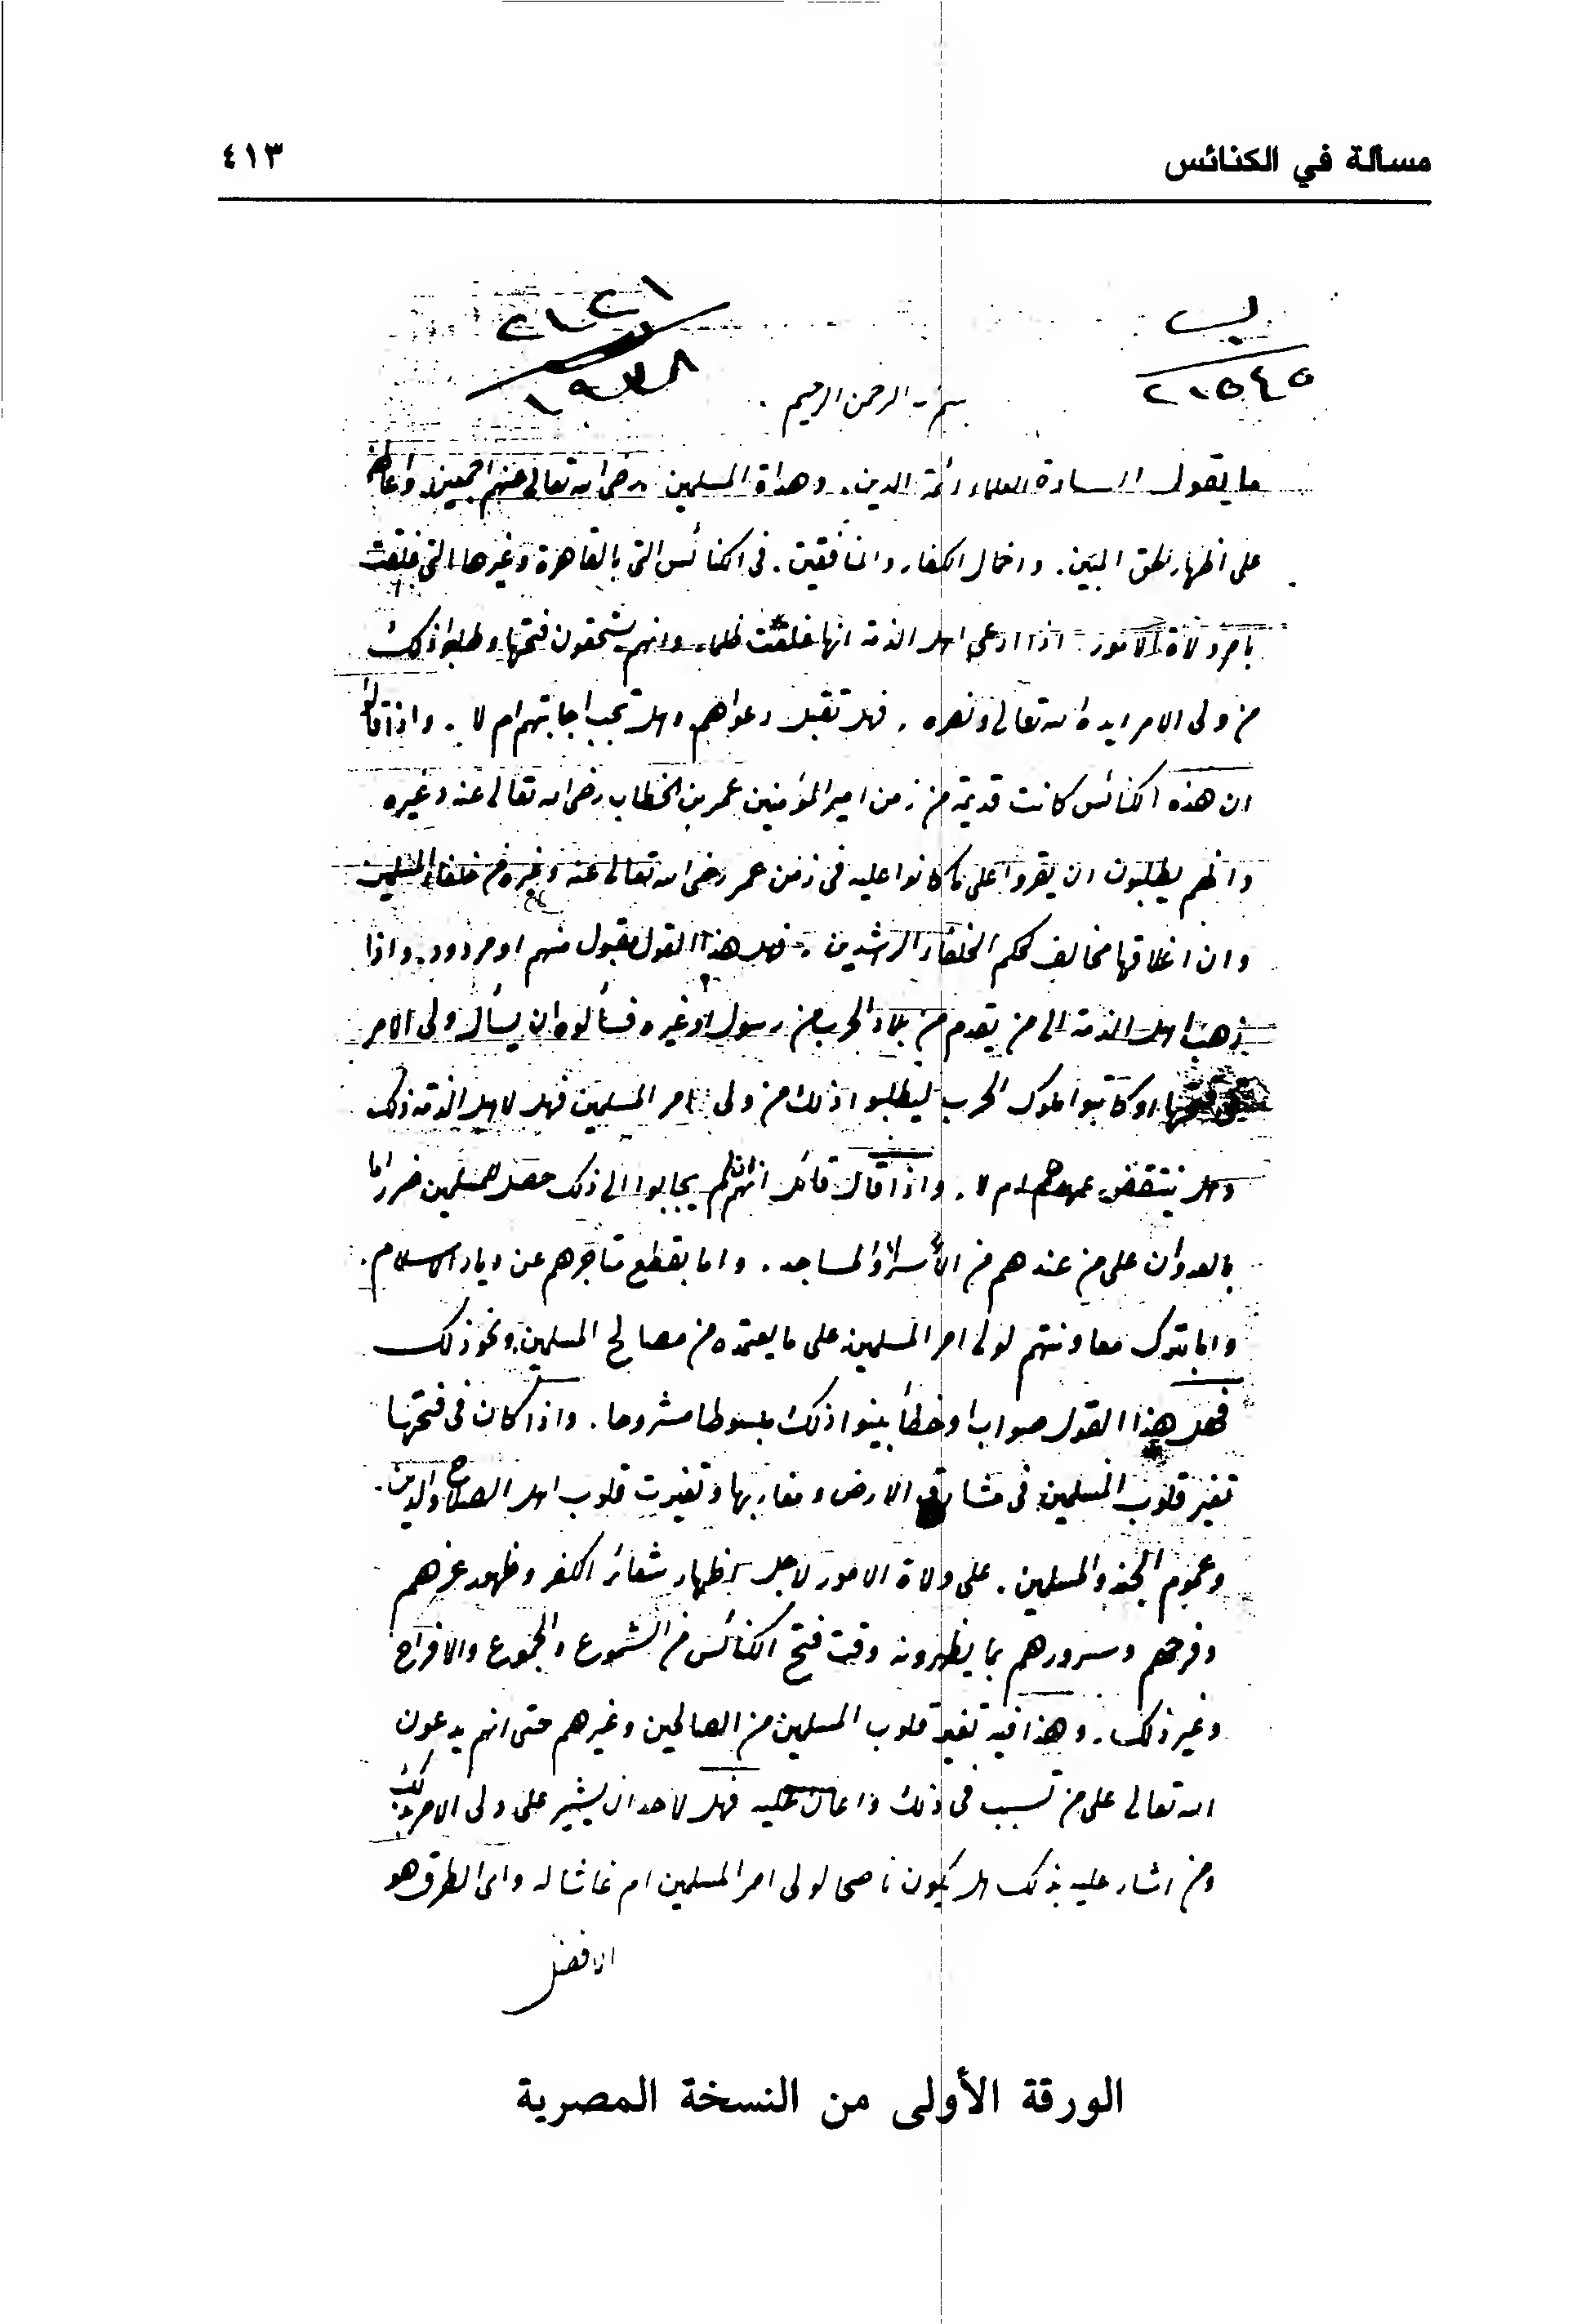 مسألة في الكنائس
٤١٣
ب
٢٠٥٤٥
١٩٣٨
بسم الله الرحمن الرحيم
ما يقول السادة العلماء ائمة الدين. وهداة المسلمين رضي الله تعالى عنهم اجمعين. واعانهم
على اظهار الحق المبين. واخمال الكفار والمنافقين. في الكنائس التي بالقاهرة وغيرها التي غلقت
بامر ولاة الامور اذا ادعى اهل الذمة انها غلقت ظلما. وانهم يستحقون فتحها وطلبوا ذلك
من ولي الامر ايده الله تعالى ونصره. فهل تقبل دعواهم وهل تجب اجابتهم ام لا. واذا قالوا
ان هذه الكنائس كانت قديمة من زمن امير المؤمنين عمر بن الخطاب رضي الله تعالى عنه وغيره
وانهم يطلبون ان يقروا على ما كانوا عليه في زمن عمر رضي الله تعالى عنه وغيره من خلفاء المسلمين
وان اغلاقها مخالف لحكم الخلفاء الراشدين. فهل هذا القول مقبول منهم او مردود. واذا
ذهب اهل الذمة الى من يقدم من بلاد الحرب من رسول او غيره فسألوه ان يسأل ولي الامر
في فتحها او كاتبوا ملوك الحرب ليطلبوا ذلك من ولي امر المسلمين فهل لاهل الذمة ذلك
وهل ينتقض عهدهم ام لا. واذا قال قائل انهم ان لم يجابوا الى ذلك حصل للمسلمين ضرر اما
بالعدوان على من عندهم من الأسراء والمساجد. واما بقطع متاجرهم عن ديار الاسلام.
واما بترك معاونتهم لولي امر المسلمين على ما يعتمده من مصالح المسلمين ونحو ذلك
فهل هذا القول صواب او خطأ بينوا ذلك مبسوطا مشروحا. واذا كان في فتحها
تغير قلوب المسلمين في مشارق الارض ومغاربها وتغيرت قلوب اهل الصلاح والدين.
وعموم الجند والمسلمين. على ولاة الامور لاجل اظهار شعائر الكفر وظهور عزهم
وفرحهم وسرورهم بما يظهرونه وقت فتح الكنائس من الشموع والجموع والافراح
وغير ذلك. وهذا فيه تغير قلوب المسلمين من الصالحين وغيرهم حتى انهم يدعون
الله تعالى على من تسبب في ذلك واعان عليه فهل لاحد ان يشير على ولي الامر بذلك
ومن اشار عليه بذلك هل يكون ناصحا لولي امر المسلمين ام غاشا له واي الطرق هو
الافضل
الورقة الأولى من النسخة المصرية